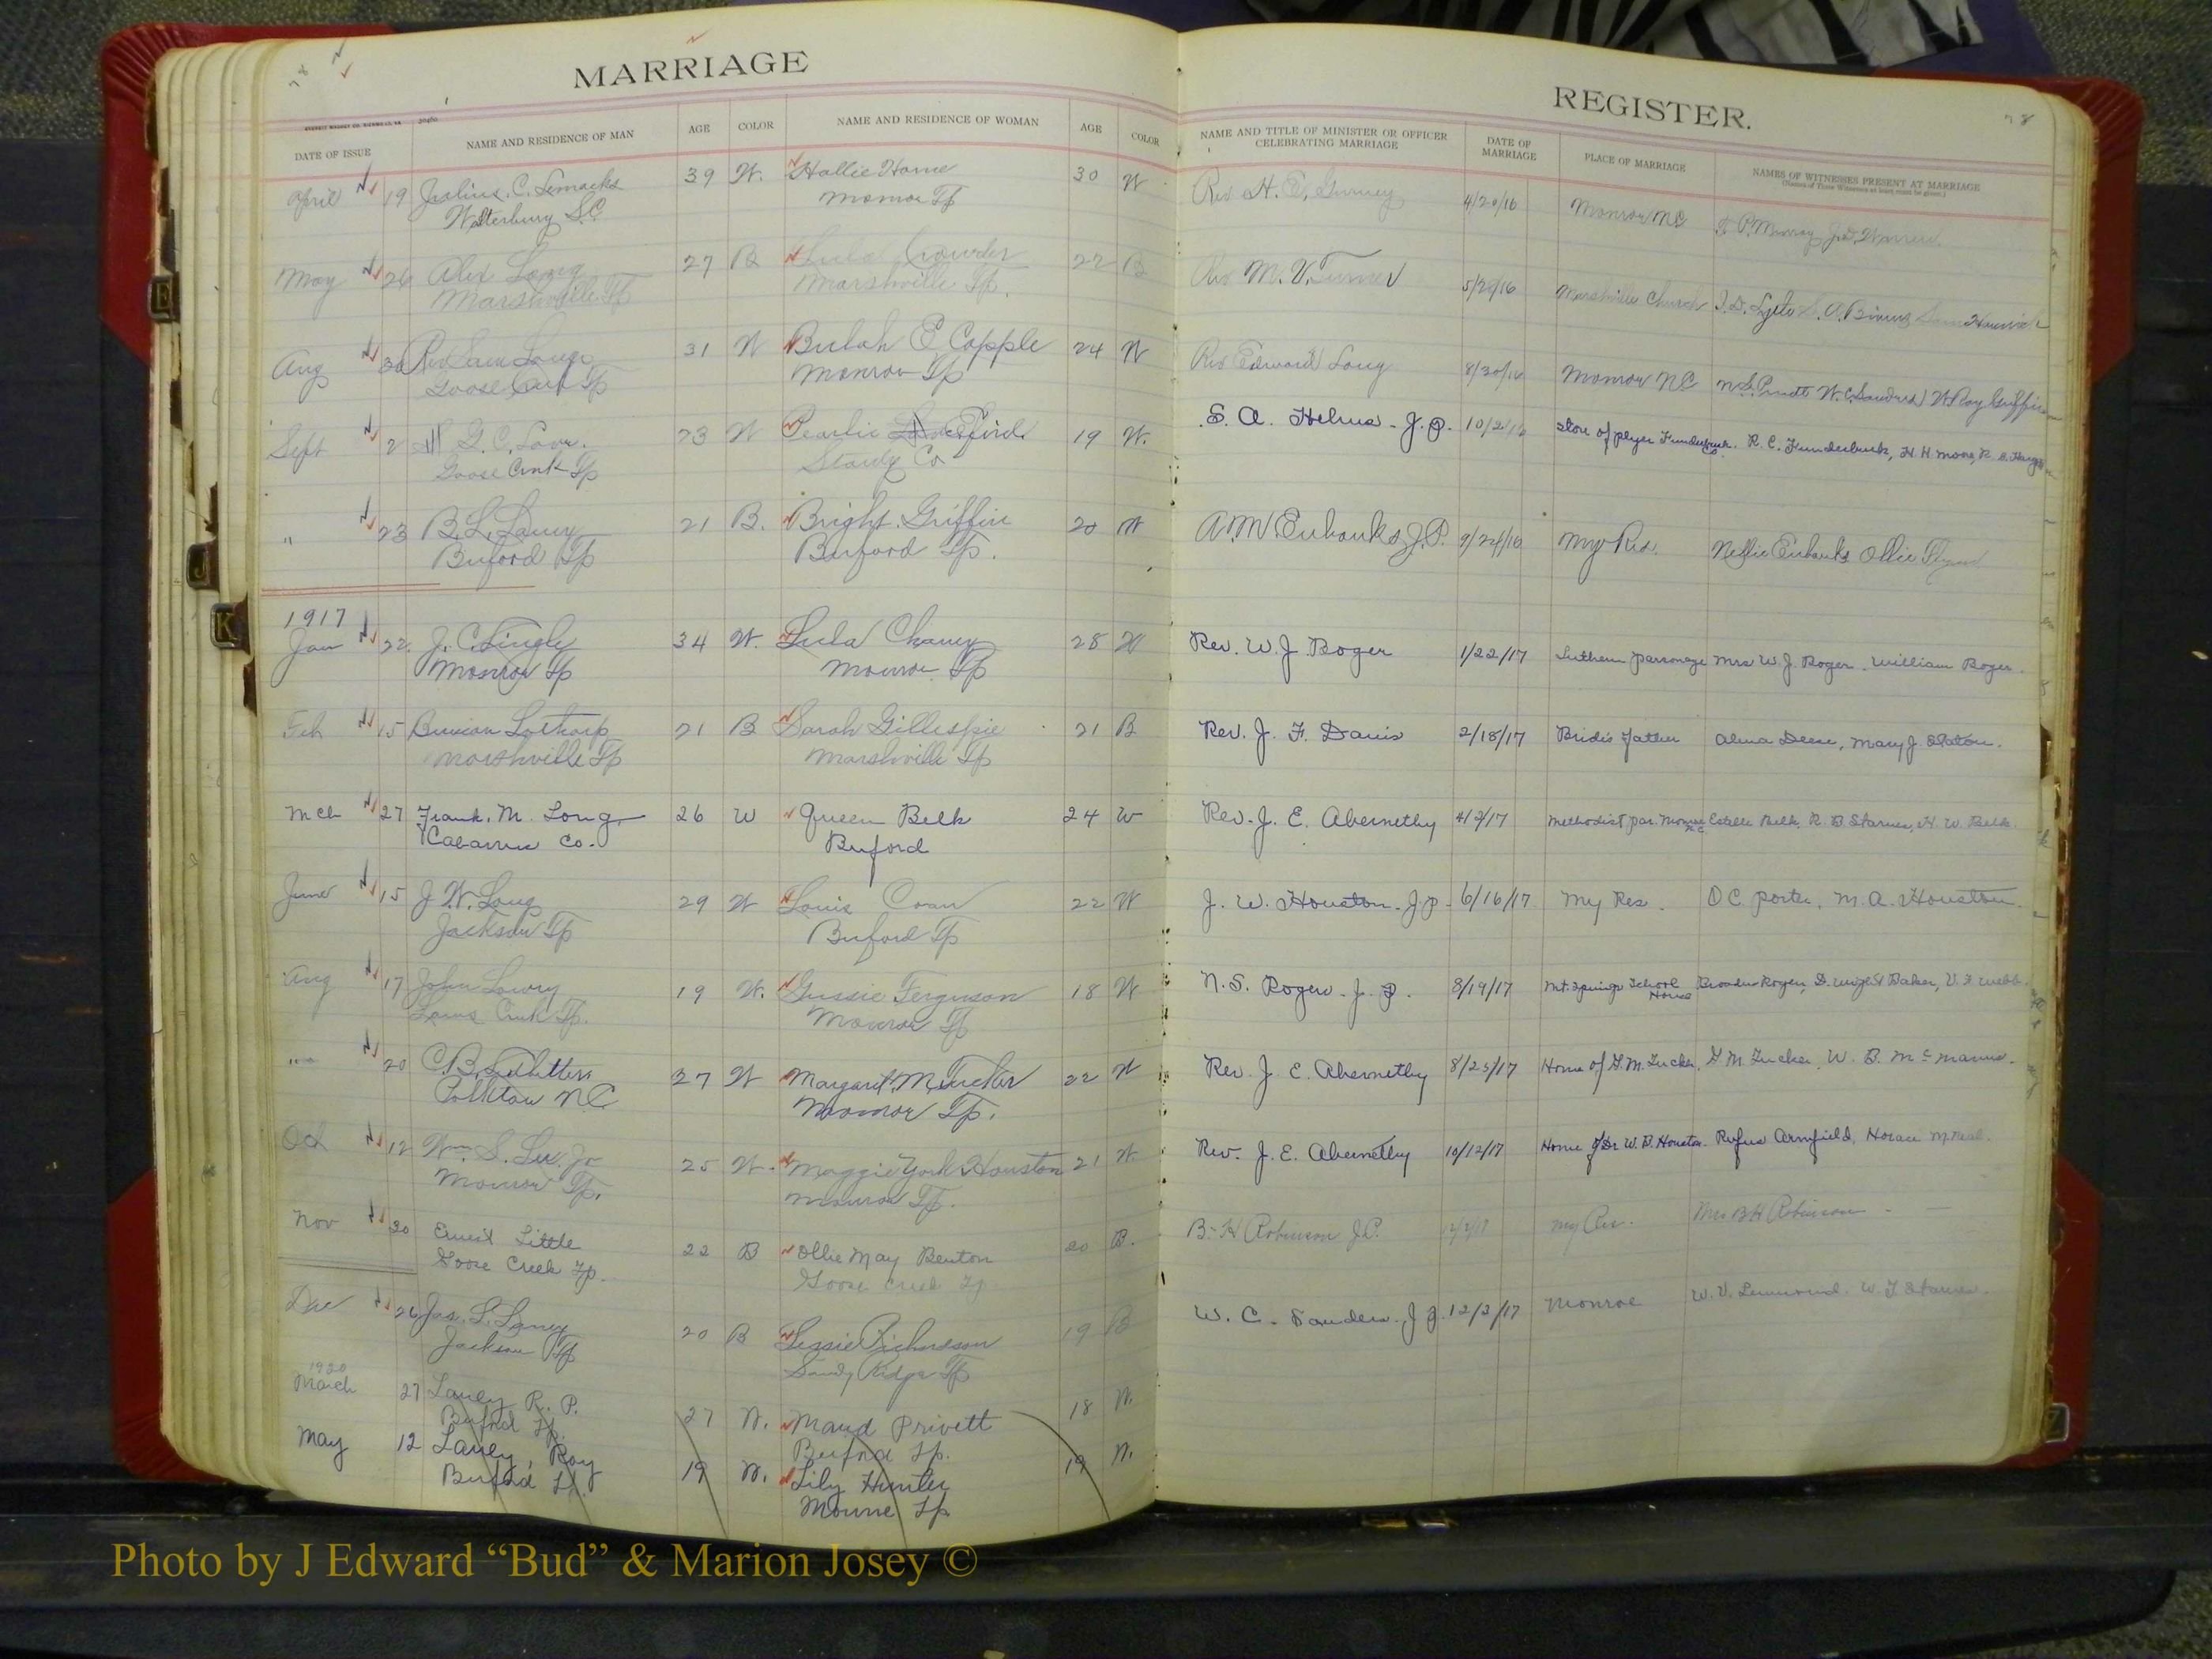 78
MARRIAGE
DATE OF ISSUE NAME AND RESIDENCE OF MAN AGE COLOR NAME AND RESIDENCE OF WOMAN AGE COLOR
April 19 Julius. C. Lemacks 39 W. Hallie Horne 30 W
Walterbury S.C. Monroe Tp
May 26 Alex Long 27 B Crowder 22 B
Marshville Tp Marshville Tp.
Aug 30 Rev Sam Long 31 W Bulah E Copple 24 W
Goose Creek Tp Monroe Tp
Sept 2 G. C. Love. 23 W Pearlie Efird 19 W.
Goose Creek Tp Stanly Co
" 23 B. L. Laney 21 B. Bright Griffin 20 W
Buford Tp Buford Tp.
1917
Jan 22 J. C. Lingle 34 W. Lula Chaney 28 W
Monroe Tp Monroe Tp
Feb 15 Bunion Lothorp 21 B Sarah Gillespie 21 B
Marshville Tp Marshville Tp
Mch 27 Frank. M. Long 26 W Queen Belk 24 W
Cabarrus Co. Buford
June 15 J. W. Long 29 W Louis 22 W
Jackson Tp Buford Tp
Aug 17 John Lowry 19 W. Gussie Ferguson 18 W
Lanes Creek Tp. Monroe Tp
" 20 C. B. 27 W Margaret M. Tucker 22 W
Polkton N.C. Monroe Tp.
Oct 12 Wm. S. Lee Jr 25 W. Maggie York Houston 21 W
Monroe Tp. Monroe Tp.
Nov 30 Ernest Little 22 B Ollie May Benton 20 B.
Goose Creek Tp. Goose Creek Tp
Dec 26 Jas. L. Laney 20 B Lessie Richardson 19 B
Jackson Tp Sandy Ridge Tp
1920
March 27 Laney R. P. 27 W. Maud Privett 18 W.
Buford Tp. Buford Tp.
May 12 Laney, Roy 19 W. Lily Hunter 19 W.
Buford Tp. Monroe Tp
78
REGISTER.
NAME AND TITLE OF MINISTER OR OFFICER CELEBRATING MARRIAGE DATE OF MARRIAGE PLACE OF MARRIAGE NAMES OF WITNESSES PRESENT AT MARRIAGE
(Names of Three Witnesses at least must be given.)
Rev H. E. Gurney 4/20/16 Monroe NC
Rev M. V. Turner 5/28/16 Marshville Church
Rev Edward Long 8/30/16 Monroe NC W. Roy Griffin
S. A. Helms - J. P. 10/2/16 Store of R. C. Funderburk, H. H. Moore,
A M Eubanks J. P. 9/24/16 My Res. Nellie Eubanks Ollie Flynn
Rev. W. J. Boger 1/22/17 Luthern parsonage Mrs W. J. Boger. William Boger.
Rev. J. F. Davis 2/18/17 Brides father Alma Deese, Mary J. Staton.
Rev. J. E. Abernethy 4/2/17 Methodist par. Monroe N.C. Estelle Belk. R. B. Starnes, H. W. Belk.
J. W. Houston. J. P. 6/16/17 My Res. O C. Porter, M. A. Houston.
N. S. Rogers. J. P. 8/19/17 Mt. Springs School House V. F. Webb.
Rev. J. E. Abernethy 8/25/17 Home of G. M. Tucker. G M. Tucker, W. B. McManus.
Rev. J. E. Abernethy 10/12/17 Home of Dr W. B. Houston. Rufus Armfield, Horace McNeal.
B. H Robinson J. P. 12/2/17 My Res. Mrs B H Robinson
W. C. Sanders. J P. 12/3/17 Monroe W. V. Lemmond. W. T Starnes.
E
J
K
Z
Photo by J Edward “Bud” & Marion Josey ©